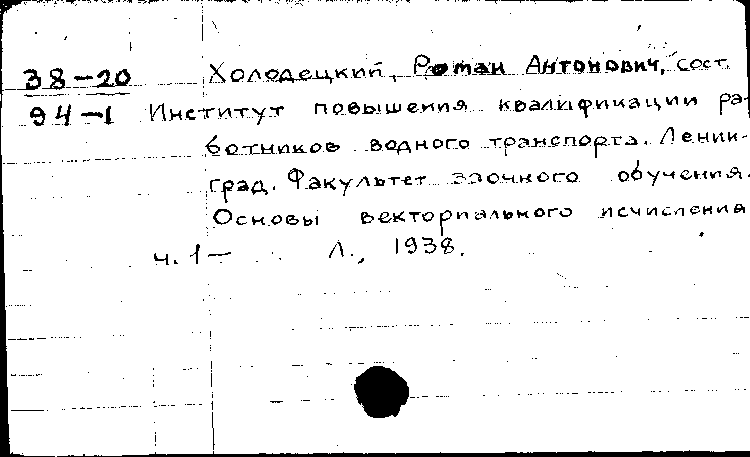 38-20 Холодецкий, Роман Антонович, сост.
94-1 Институт повышения квалификации ра-
ботников водного транспорта. Ленин-
град. Факультет заочного обучения.
Основы векториального исчисления
ч. 1- Л., 1938.